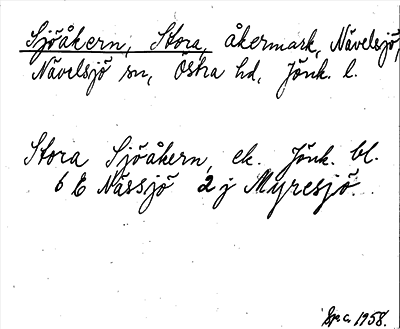 Sjöåkern, Stora, åkermark, Nävelsjö,
Nävelsjö sn, Östra hd, Jönk. l.
Stora Sjöåkern, ek. Jönk. bl.
6 E Nässjö 2 j Myresjö.
1958.